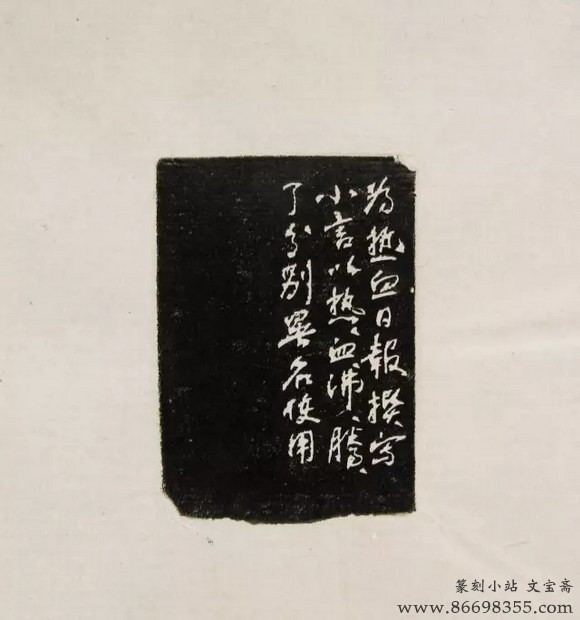 为热血日報撰写
小言以热、血沸、腾、
了分别署名使用
篆刻小站 文宝斋
www.86698355.com